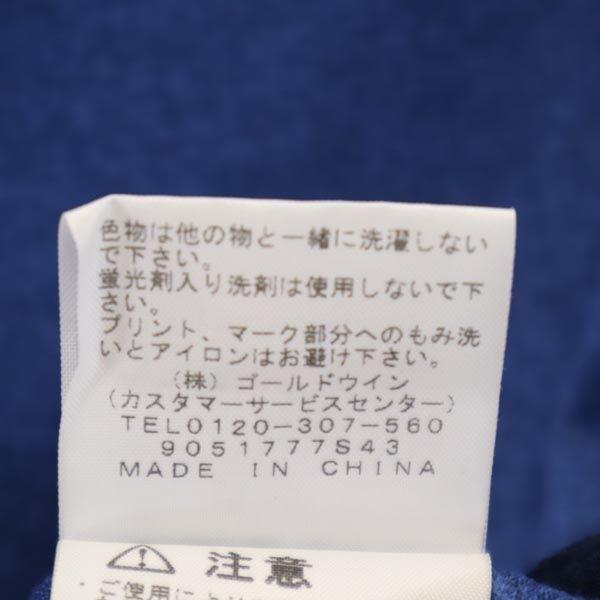 色物は他の物と一緒に洗濯しない
で下さい。
蛍光剤入り洗剤は使用しないで下
さい。
プリント、マーク部分へのもみ洗
いとアイロンはお避け下さい。
(株)ゴールドウイン
(カスタマーサービスセンター)
TEL0120-307-560
9051777S43
MADE IN CHINA
注意
・ご使用によ